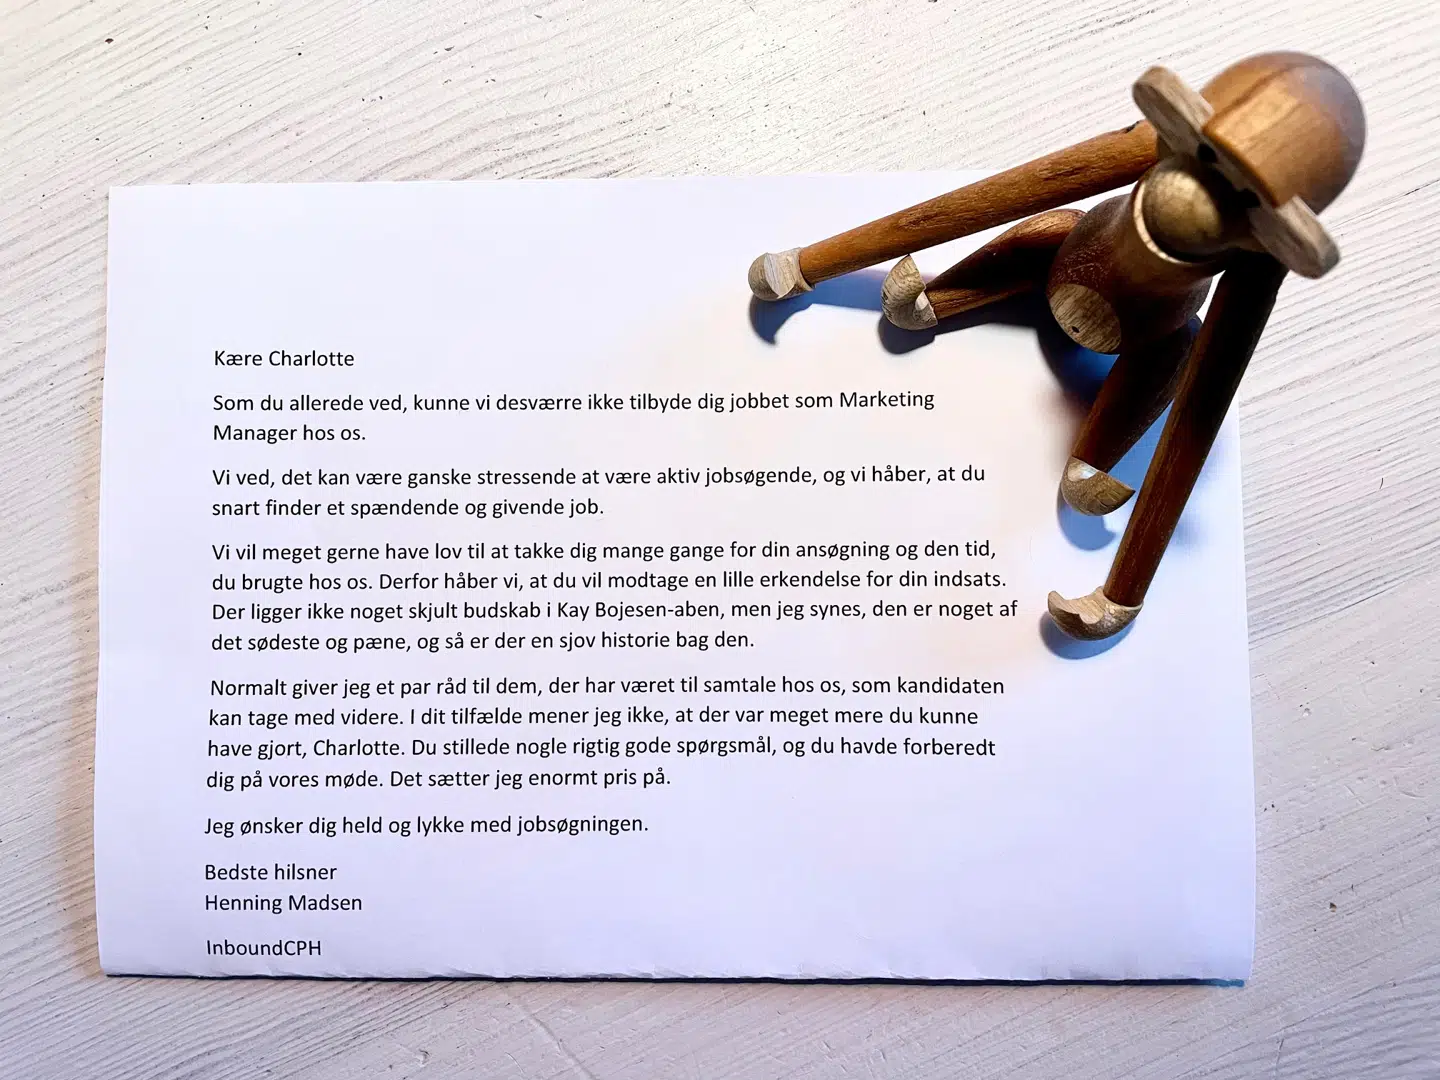 Kære Charlotte
Som du allerede ved, kunne vi desværre ikke tilbyde dig jobbet som Marketing
Manager hos os.
Vi ved, det kan være ganske stressende at være aktiv jobsøgende, og vi håber, at du
snart finder et spændende og givende job.
Vi vil meget gerne have lov til at takke dig mange gange for din ansøgning og den tid,
du brugte hos os. Derfor håber vi, at du vil modtage en lille erkendelse for din indsats.
Der ligger ikke noget skjult budskab i Kay Bojesen-aben, men jeg synes, den er noget af
det sødeste og pæne, og så er der en sjov historie bag den.
Normalt giver jeg et par råd til dem, der har været til samtale hos os, som kandidaten
kan tage med videre. I dit tilfælde mener jeg ikke, at der var meget mere du kunne
have gjort, Charlotte. Du stillede nogle rigtig gode spørgsmål, og du havde forberedt
dig på vores møde. Det sætter jeg enormt pris på.
Jeg ønsker dig held og lykke med jobsøgningen.
Bedste hilsner
Henning Madsen
InboundCPH